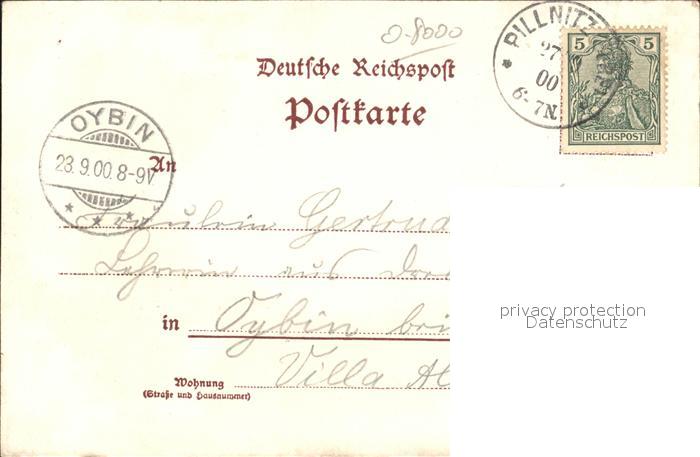 0-8000
PILLNITZ
27
00
6-7N.
5 5
REICHSPOST
Deutsche Reichspost
Postkarte
OYBIN
28.9.00.8-9V.
An
Fräulein Gertrud
Lehrerin aus
in Oybin bei
Villa
Wohnung
(Straße und Hausnummer)
privacy protection
Datenschutz